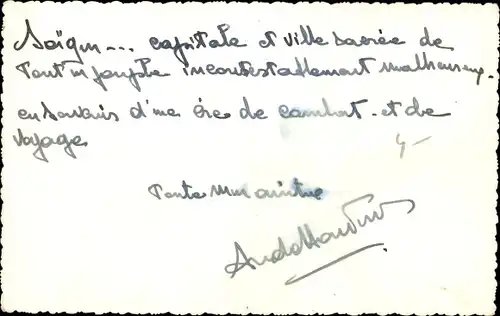 Saïgon... capitale et ville sacrée de
tout un peuple incontestablement malheureux.
en souvenir d'une ère de combat et de
voyage
Toute mon amitié